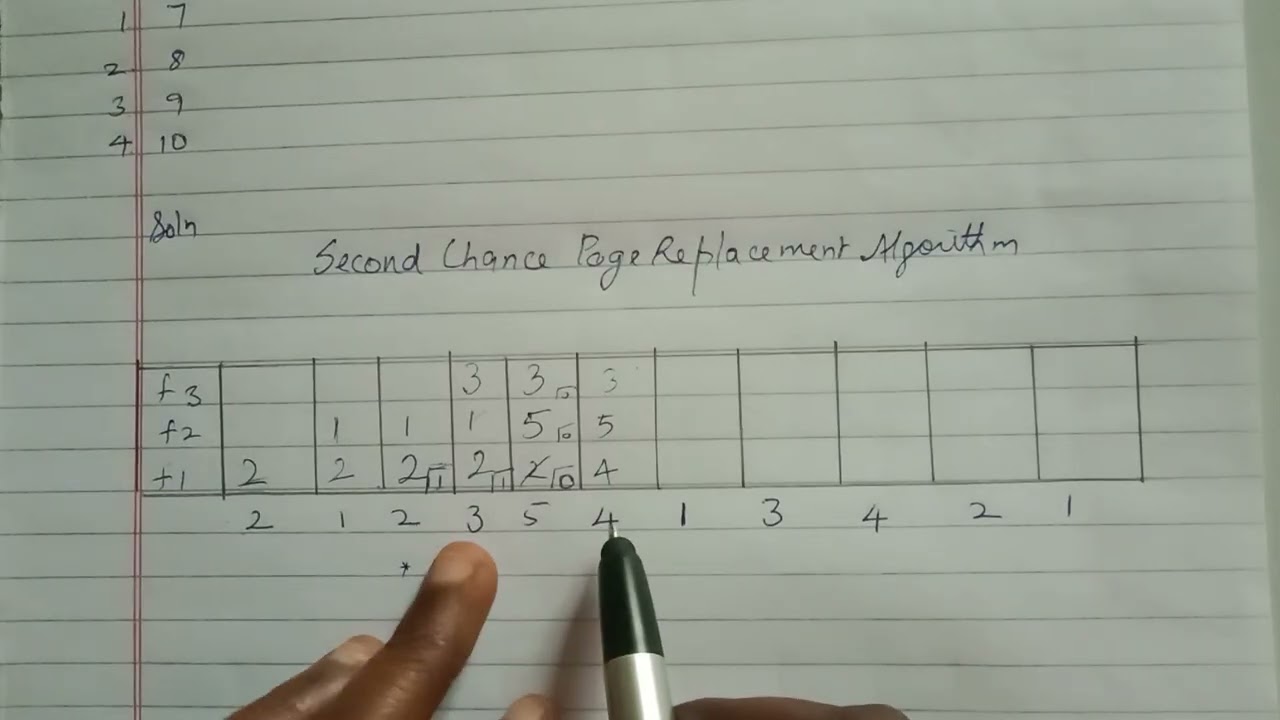 1 7
2 8
3 9
4 10
Soln
Second Chance Page Replacement Algorithm
f3 3 3 0 3
f2 1 1 1 5 0 5
f1 2 2 2 1 2 1 2 0 4
2 1 2 3 5 4 1 3 4 2 1
*